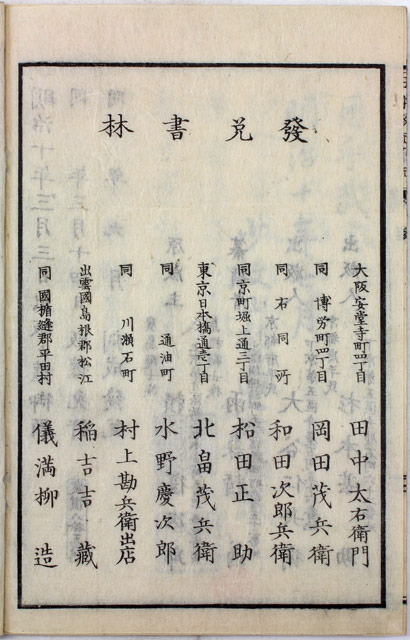 發兌書林
大阪安堂寺町四丁目 田中太右衛門
同 博労町四丁目 岡田茂兵衛
同 石同所 和田次郎兵衛
同 京町堀上通三丁目 松田正助
東京日本橋通壱丁目 北畠茂兵衛
同 通油町 水野慶次郎
同 川瀬石町 村上勘兵衛出店
出雲國島根郡松江 稲吉吉藏
同國楯縫郡平田村 儀満柳造